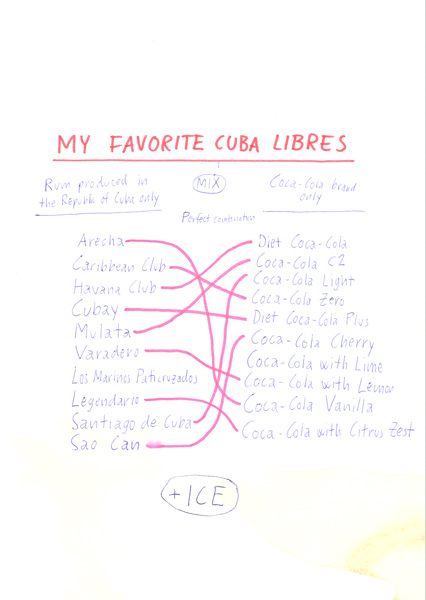 MY FAVORITE CUBA LIBRES
Rum produced in
the Republic of Cuba only
MIX
Coca-Cola brand
only
Perfect combination
Arecha
Caribbean Club
Havana Club
Cubay
Mulata
Varadero
Los Marinos Paticruzados
Legendario
Santiago de Cuba
Sao Can
Diet Coca-Cola
Coca-Cola C2
Coca-Cola Light
Coca-Cola Zero
Diet Coca-Cola Plus
Coca-Cola Cherry
Coca-Cola with Lime
Coca-Cola with Lemon
Coca-Cola Vanilla
Coca-Cola with Citrus Zest
+ICE